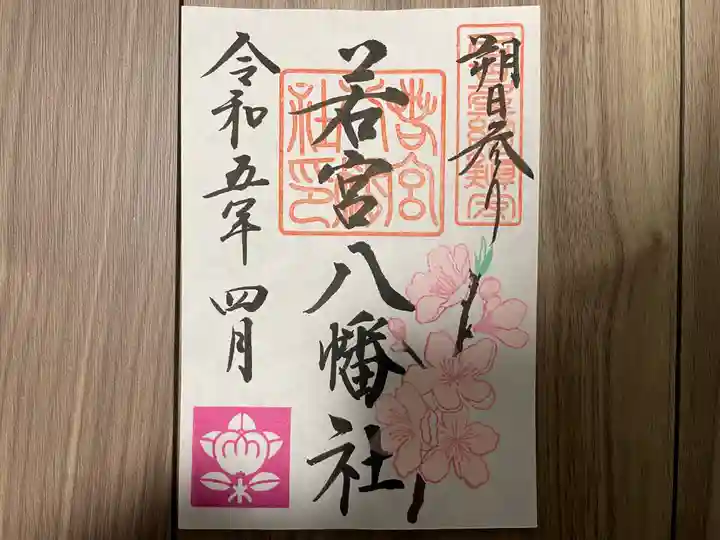 朔日参り
若宮八幡社
令和五年 四月